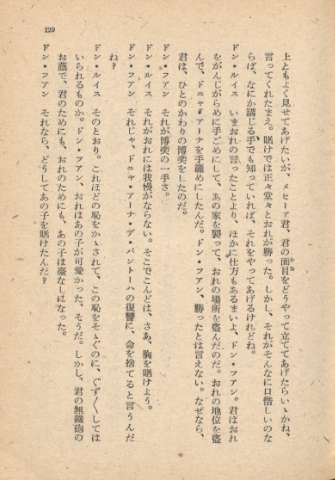 129
上ともよく見せてあげたいが、メヒーア君、君の面目をどうやって立ててあげたらいゝかね、
言ってくれたまえ。賭けでは正々堂々とおれが勝った。しかし、それがそんなに口惜しいのな
らば、なにか講じる手でも知っていれば、それをやってあげるけれどね。
ドン・ルイス　いまおれの言ったことより、ほかに仕方もあるまいよ、ドン・フアン。君はおれ
をがんじがらめに手ごめにして、あの家を襲って、おれの場所を盗んだのだ。おれの地位を盗
んで、ドニャ・アーナを手籠めにしたんだ。ドン・フアン、勝ったとは言えない。なぜなら、
君は、ひとのかわりの博奕をしたのだ。
ドン・フアン　それが博奕の一手さ。
ドン・ルイス　それがおれには我慢がならない。そこでこんどは、さあ、胸を賭けよう。
ドン・フアン　それじゃ、ドニャ・アーナ・デ・パントーハの復讐に、命を捨てると言うんだ
ね？
ドン・ルイス　そのとおり。これほどの恥をかゝされて、この恥をそゝぐのに、ぐず〳〵しては
いられるものか。ドン・フアン、おれはあの子が可愛かった。そうだ。しかし、君の無鐵砲の
お蔭で、君のためにも、おれのためにも、あの子は臺なしになった。
ドン・フアン　それなら、どうしてあの子を賭けたんだ？